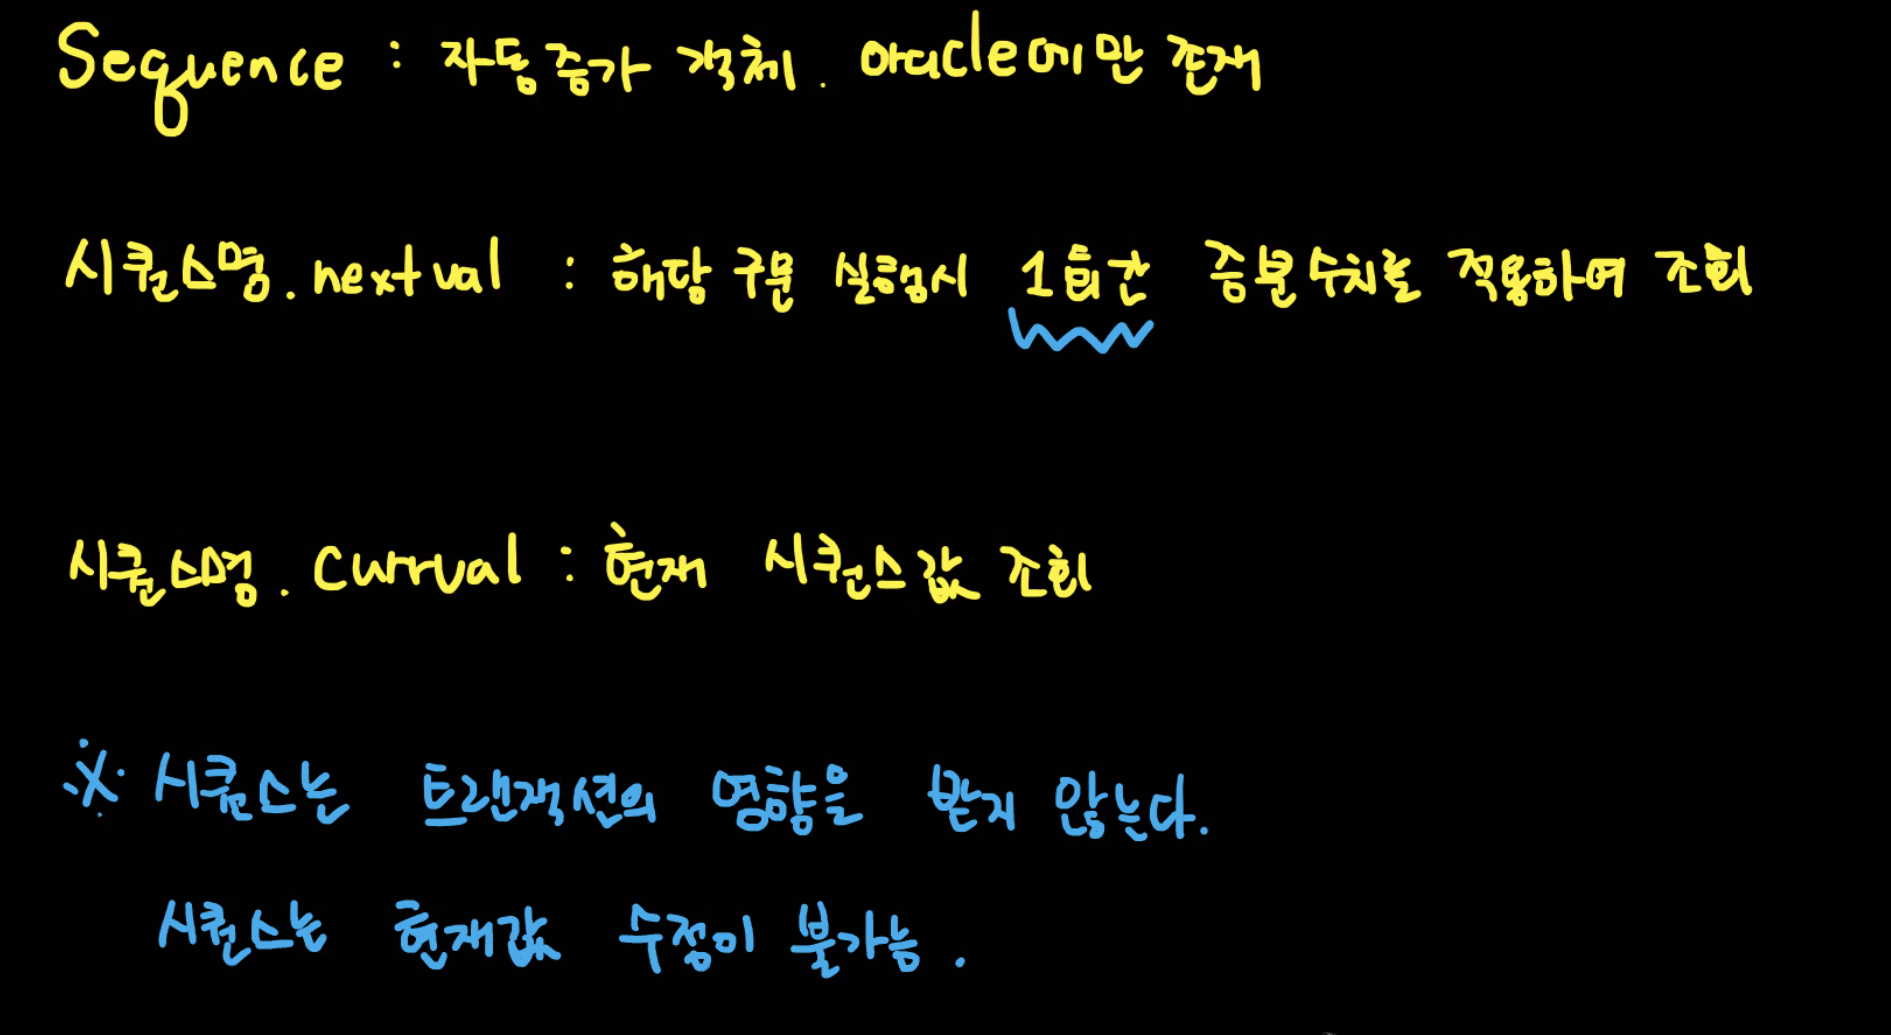 Sequence : 자동증가 객체. oracle에만 존재
시퀀스명.nextval : 해당 구문 실행시 1회간 증분수치를 적용하여 조회
시퀀스명.currval : 현재 시퀀스값 조회
※ 시퀀스는 트랜잭션의 영향을 받지 않는다.
시퀀스는 현재값 수정이 불가능.